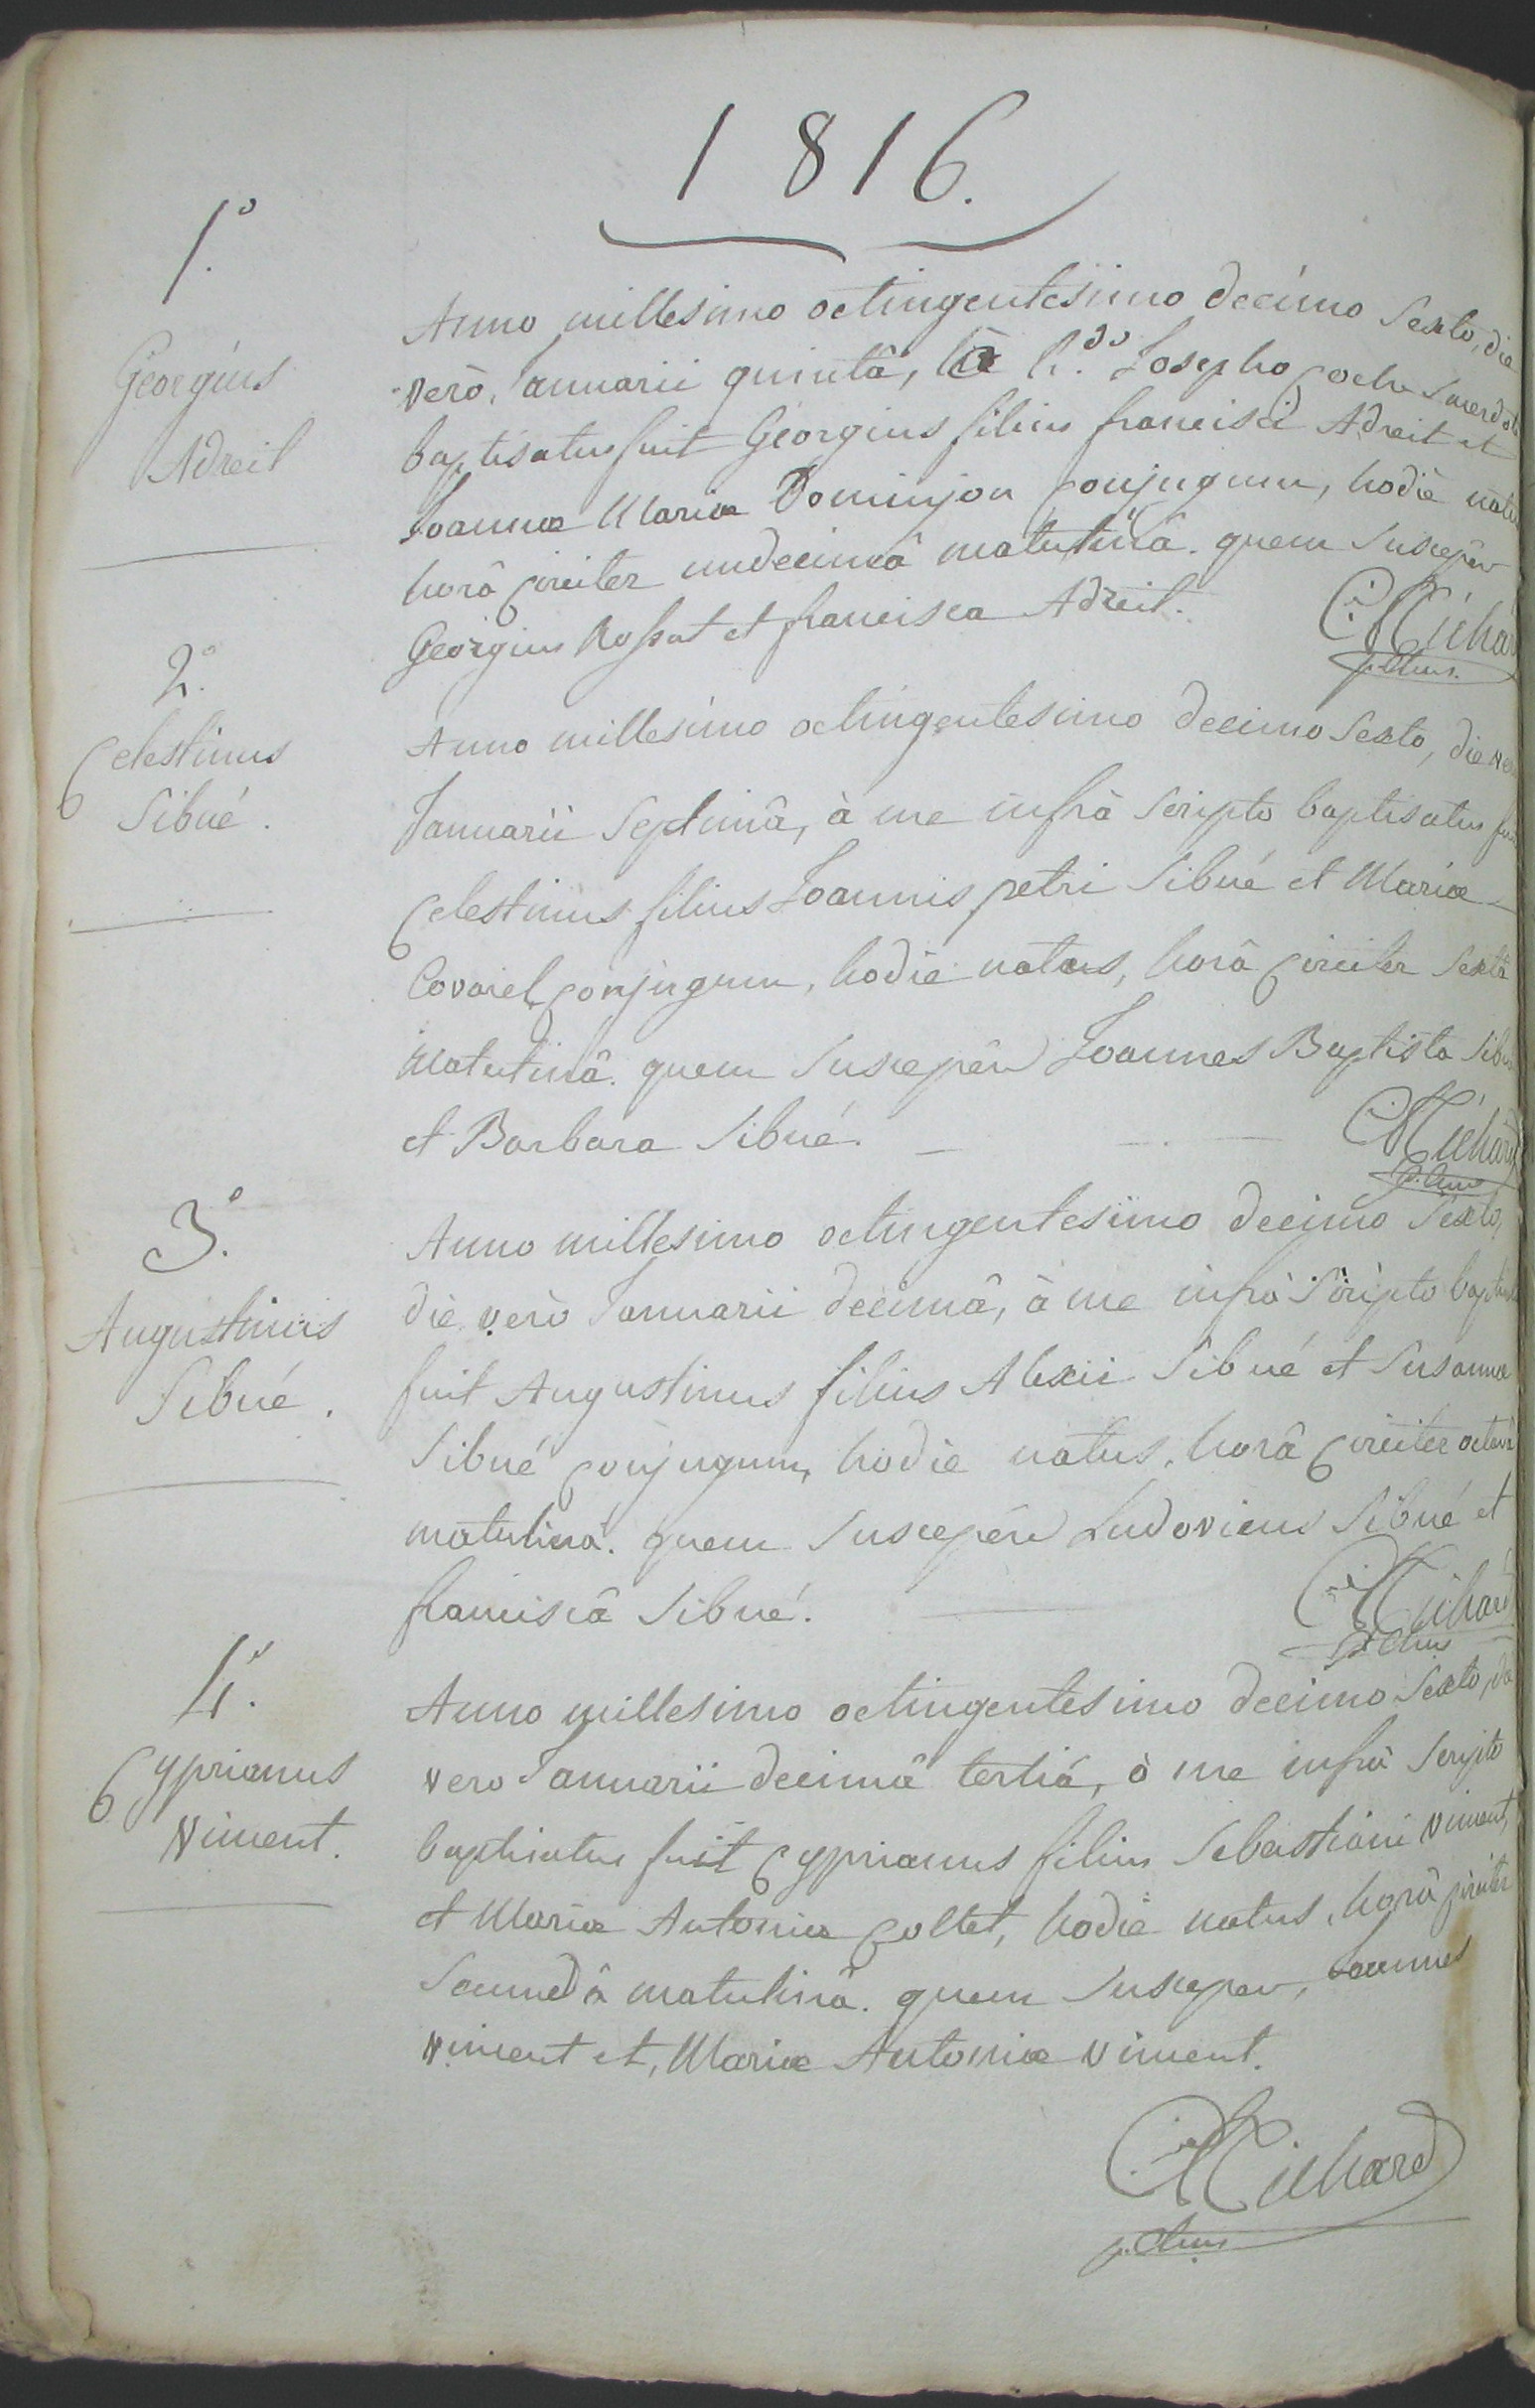 1816.
1.°
Georgius
Adreit
Anno millesimo octingentesimo decimo Sexto, die
verò Januarii quintâ, à R.do Josepho
baptisatus fuit Georgius filius francisci Adreit et
Joannæ Mariæ Dominjon conjugum, hodiè natus
horâ circiter undecimâ matutinâ. quem Suscepêr
Georgius Rossat et francisca Adreit.
Michard
p.chus.
2.°
Celestinus
Sibué.
Anno millesimo octingentesimo decimo Sexto, die vero
Januarii Septimâ, à me infrà Scripto baptisatus fuit
Celestinus filius Joannis petri Sibué et Mariæ
Covarel conjugum, hodie natus, horâ circiter Sextâ
Matutinâ. quem Suscepêr Joannes Baptista Sibué
et Barbara Sibué.
Michard
p.chus
3.°
Augustinus
Sibué.
Anno millesimo octingentesimo decimo Sexto,
die verò Januarii decimâ, à me infrà Scripto baptisatus
fuit Augustinus filius Alexii Sibué et Susannæ
Sibué conjugum, hodie natus, horâ circiter octavâ
matutinâ. quem Suscepêr Ludovicus Sibué et
franciscâ Sibué.
Michard
p.chus
4.°
Cyprianus
viment.
Anno millesimo octingentesimo decimo Sexto, die
vero Januarii decimâ tertiâ, à me infrà Scripto
baptisatus fuit Cyprianus filius Sebastiani viment,
et Mariæ Antoniæ Collet, hodie natus, horâ circiter
Secundâ matutinâ. quem Suscepêr, Joannes
viment et, Mariæ Antoniæ viment.
Michard
p.chus